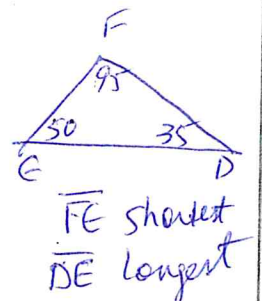 F
95
50 35
E D
FE shortest
DE longest